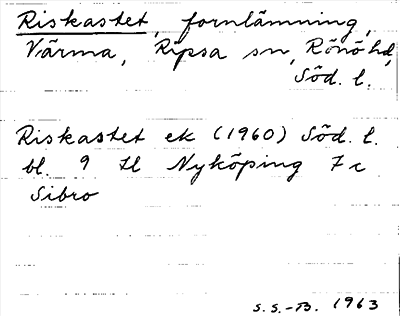 Riskastet, fornlämning,
Värma, Ripsa sn, Rönö hd,
Söd. l.
Riskastet ek (1960) Söd. l.
bl. 9 H Nyköping 7 c
Sibro
S. S.-B. 1963